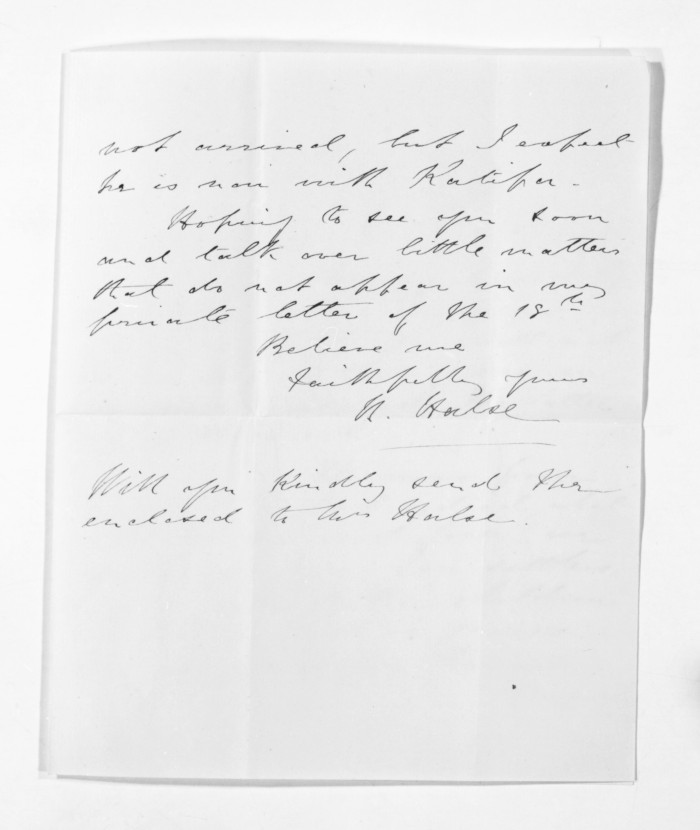 not arrived, but I expect
he is now with Katipa.
Hoping to see you soon
and talk over little matters
that do not appear in my
private letter of the 18th
Believe me
Faithfully yours
H. Halse
Will you kindly send the
enclosed to Mrs Halse.